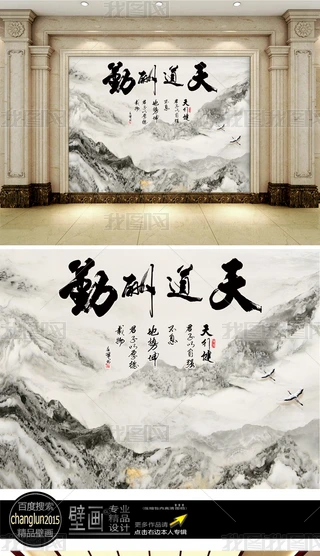 天道酬勤
天行健
君子以自强
不息
地势坤
君子以厚德
载物
天道酬勤
天行健
君子以自强
不息
地势坤
君子以厚德
载物
百度搜索
changlun2015
精品壁画
壁画
专业
精品
设计
更多作品请
点击右边本人专辑